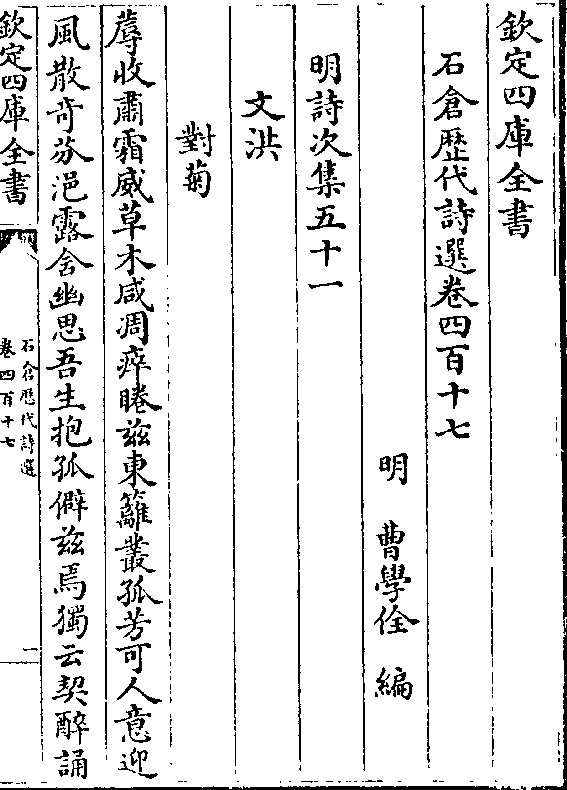 欽定四庫全書
石倉歴代詩選卷四百十七
明 曹學佺 編
明詩次集五十一
文洪
對菊
蓐收肅霜威草木咸凋瘁睠兹東籬叢孤芳可人意迎
風散奇芬浥露含幽思吾生抱孤僻兹焉獨云契醉誦
欽定四庫全書
石倉歴代詩選
卷四百十七
一